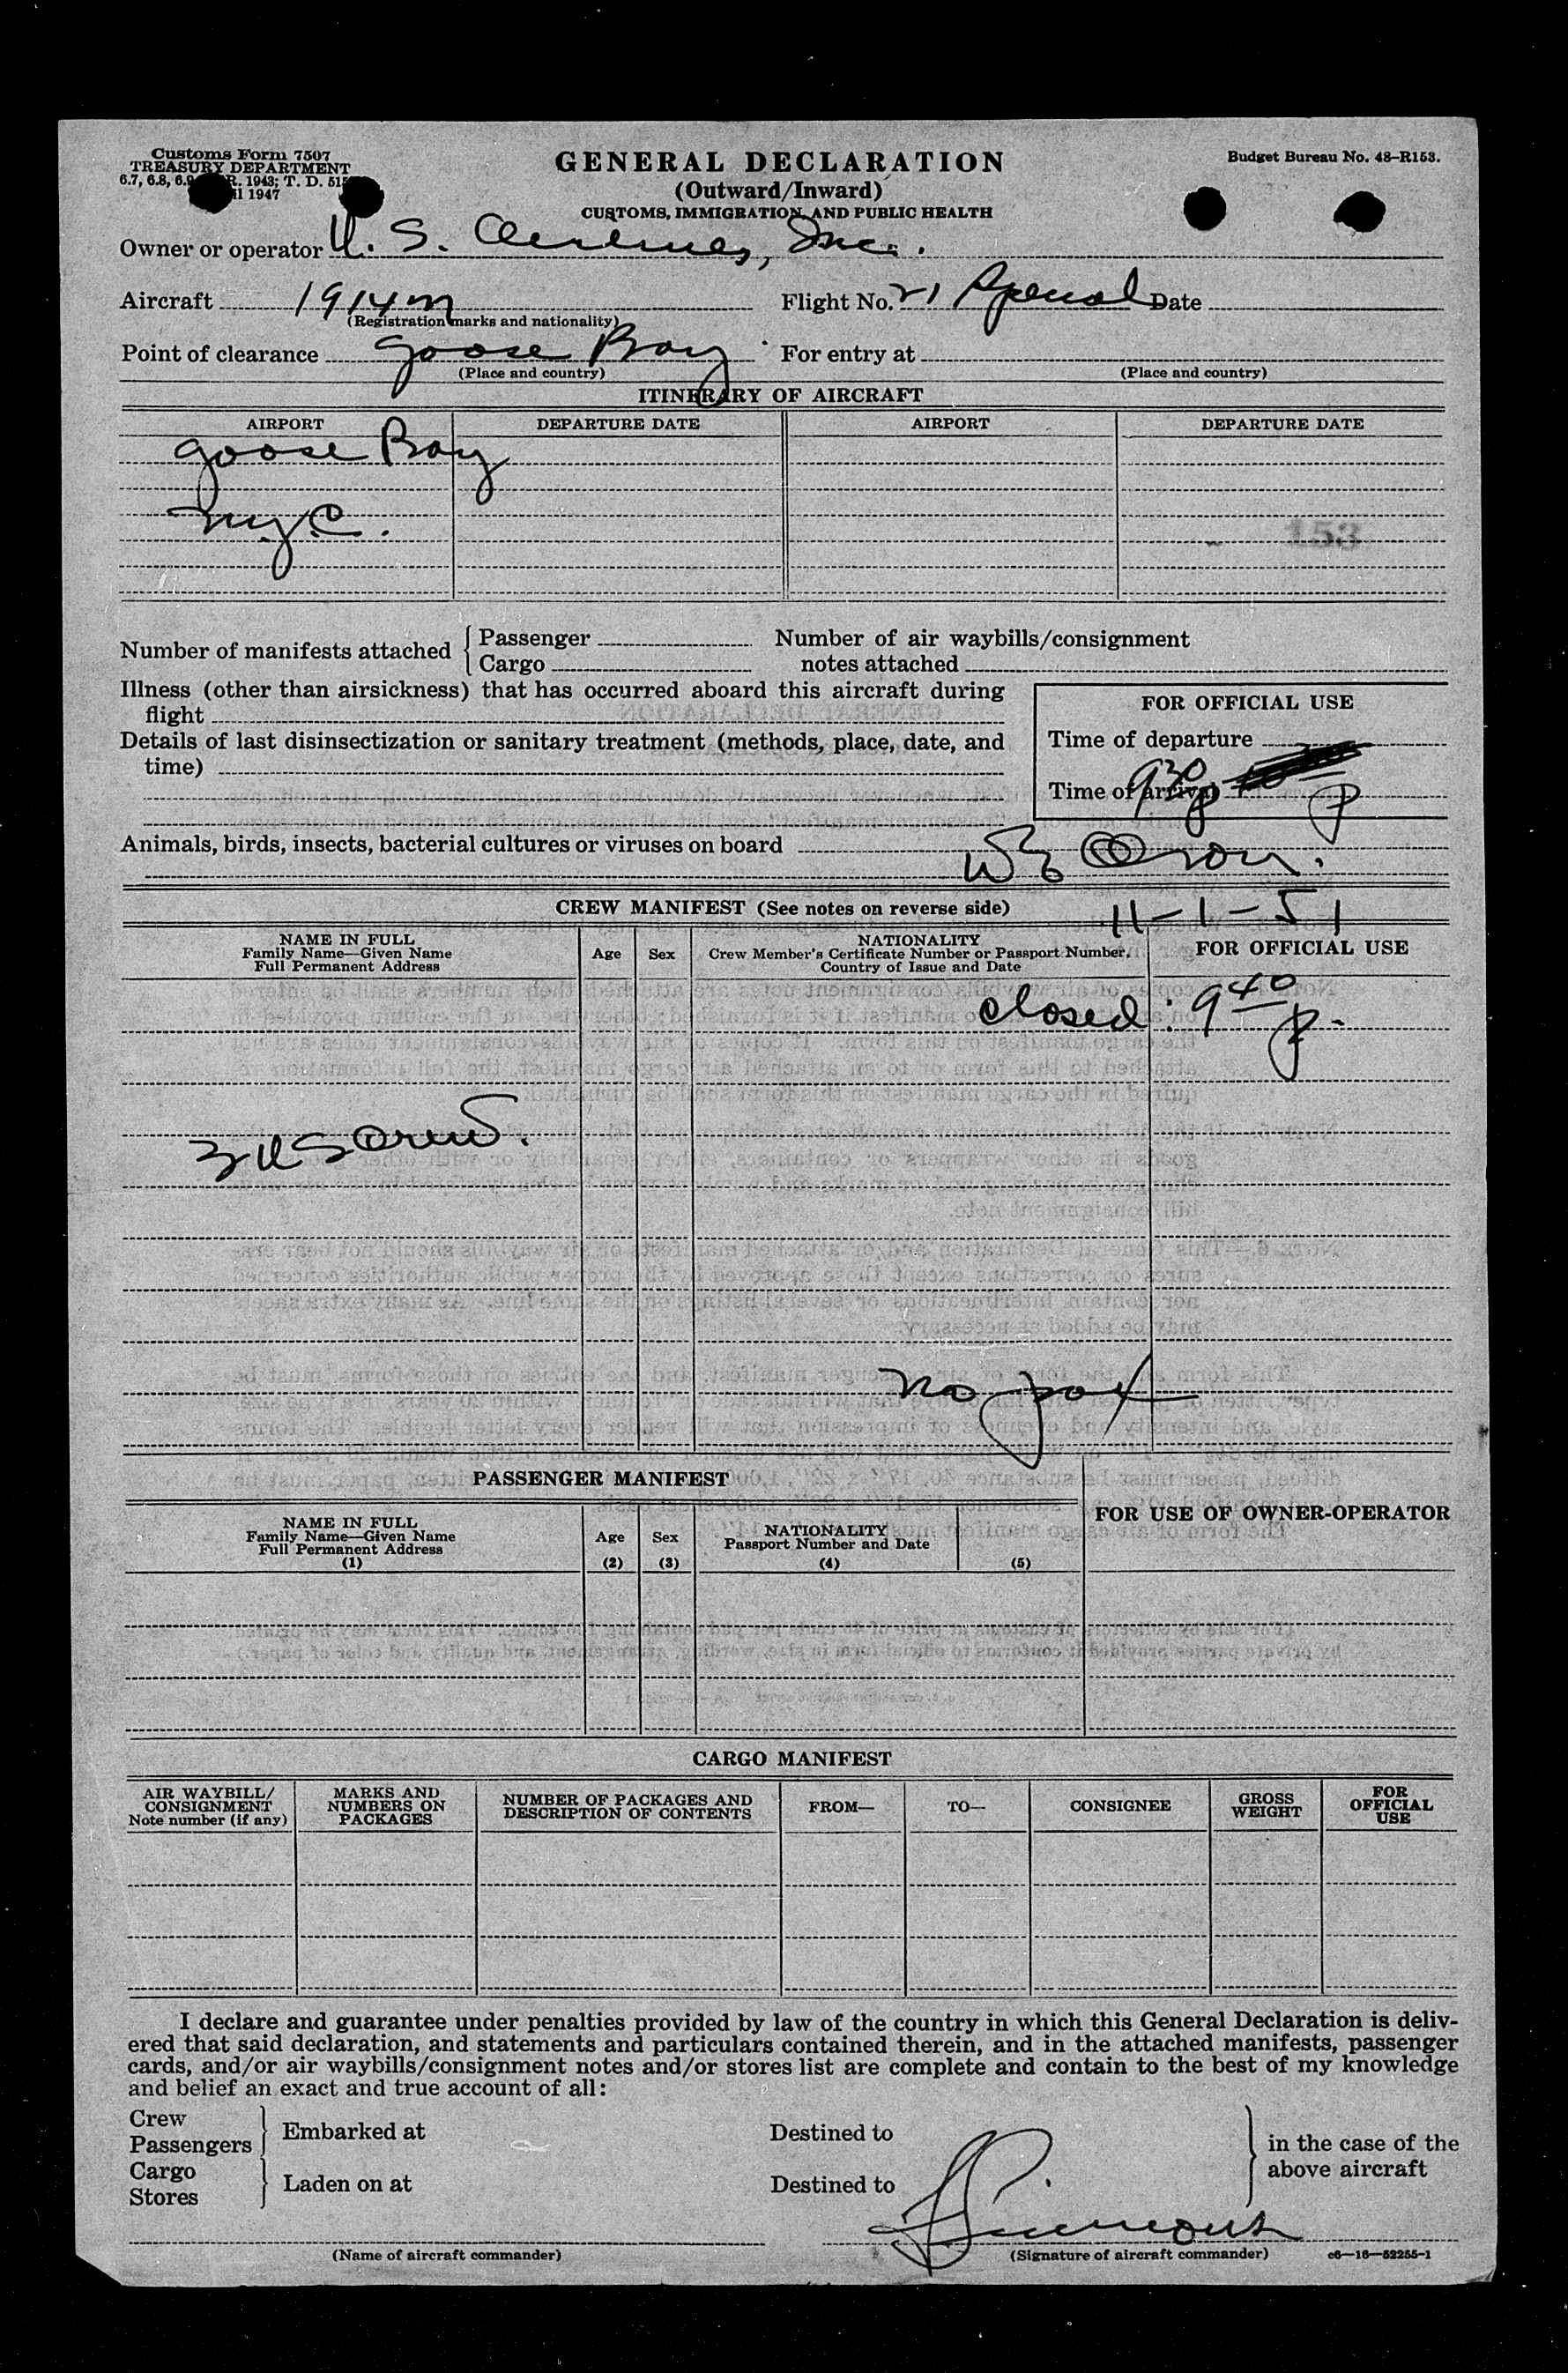 Customs Form 7507
TREASURY DEPARTMENT
6.7, 6.8, 6.9 R. 1943; T. D. 515
1947
GENERAL DECLARATION
(Outward/Inward)
CUSTOMS, IMMIGRATION, AND PUBLIC HEALTH
Budget Bureau No. 48–R153.
Owner or operator U. S. Airlines, Inc.
Aircraft 1914M Flight No. 21 Special Date
(Registration marks and nationality)
Point of clearance Goose Bay For entry at
(Place and country) (Place and country)
ITINERARY OF AIRCRAFT
AIRPORT DEPARTURE DATE AIRPORT DEPARTURE DATE
Goose Bay
N.Y.C.
153
Number of manifests attached { Passenger Number of air waybills/consignment
Cargo notes attached
Illness (other than airsickness) that has occurred aboard this aircraft during
flight
Details of last disinsectization or sanitary treatment (methods, place, date, and
time)
FOR OFFICIAL USE
Time of departure
Time of arrival 9 30 p
P
Animals, birds, insects, bacterial cultures or viruses on board
CREW MANIFEST (See notes on reverse side) 11-1-51
NAME IN FULL
Family Name—Given Name
Full Permanent Address
Age Sex
NATIONALITY
Crew Member's Certificate Number or Passport Number,
Country of Issue and Date
FOR OFFICIAL USE
closed: 9 40 p.
3 US Crew.
no pax
PASSENGER MANIFEST
FOR USE OF OWNER-OPERATOR
NAME IN FULL
Family Name—Given Name
Full Permanent Address
(1)
Age
(2)
Sex
(3)
NATIONALITY
Passport Number and Date
(4) (5)
CARGO MANIFEST
AIR WAYBILL/
CONSIGNMENT
Note number (if any)
MARKS AND
NUMBERS ON
PACKAGES
NUMBER OF PACKAGES AND
DESCRIPTION OF CONTENTS
FROM— TO— CONSIGNEE
GROSS
WEIGHT
FOR
OFFICIAL
USE
I declare and guarantee under penalties provided by law of the country in which this General Declaration is deliv-
ered that said declaration, and statements and particulars contained therein, and in the attached manifests, passenger
cards, and/or air waybills/consignment notes and/or stores list are complete and contain to the best of my knowledge
and belief an exact and true account of all:
Crew
Passengers } Embarked at Destined to
Cargo
Stores } Laden on at Destined to
} in the case of the
above aircraft
(Name of aircraft commander) (Signature of aircraft commander) c6—16—52255-1